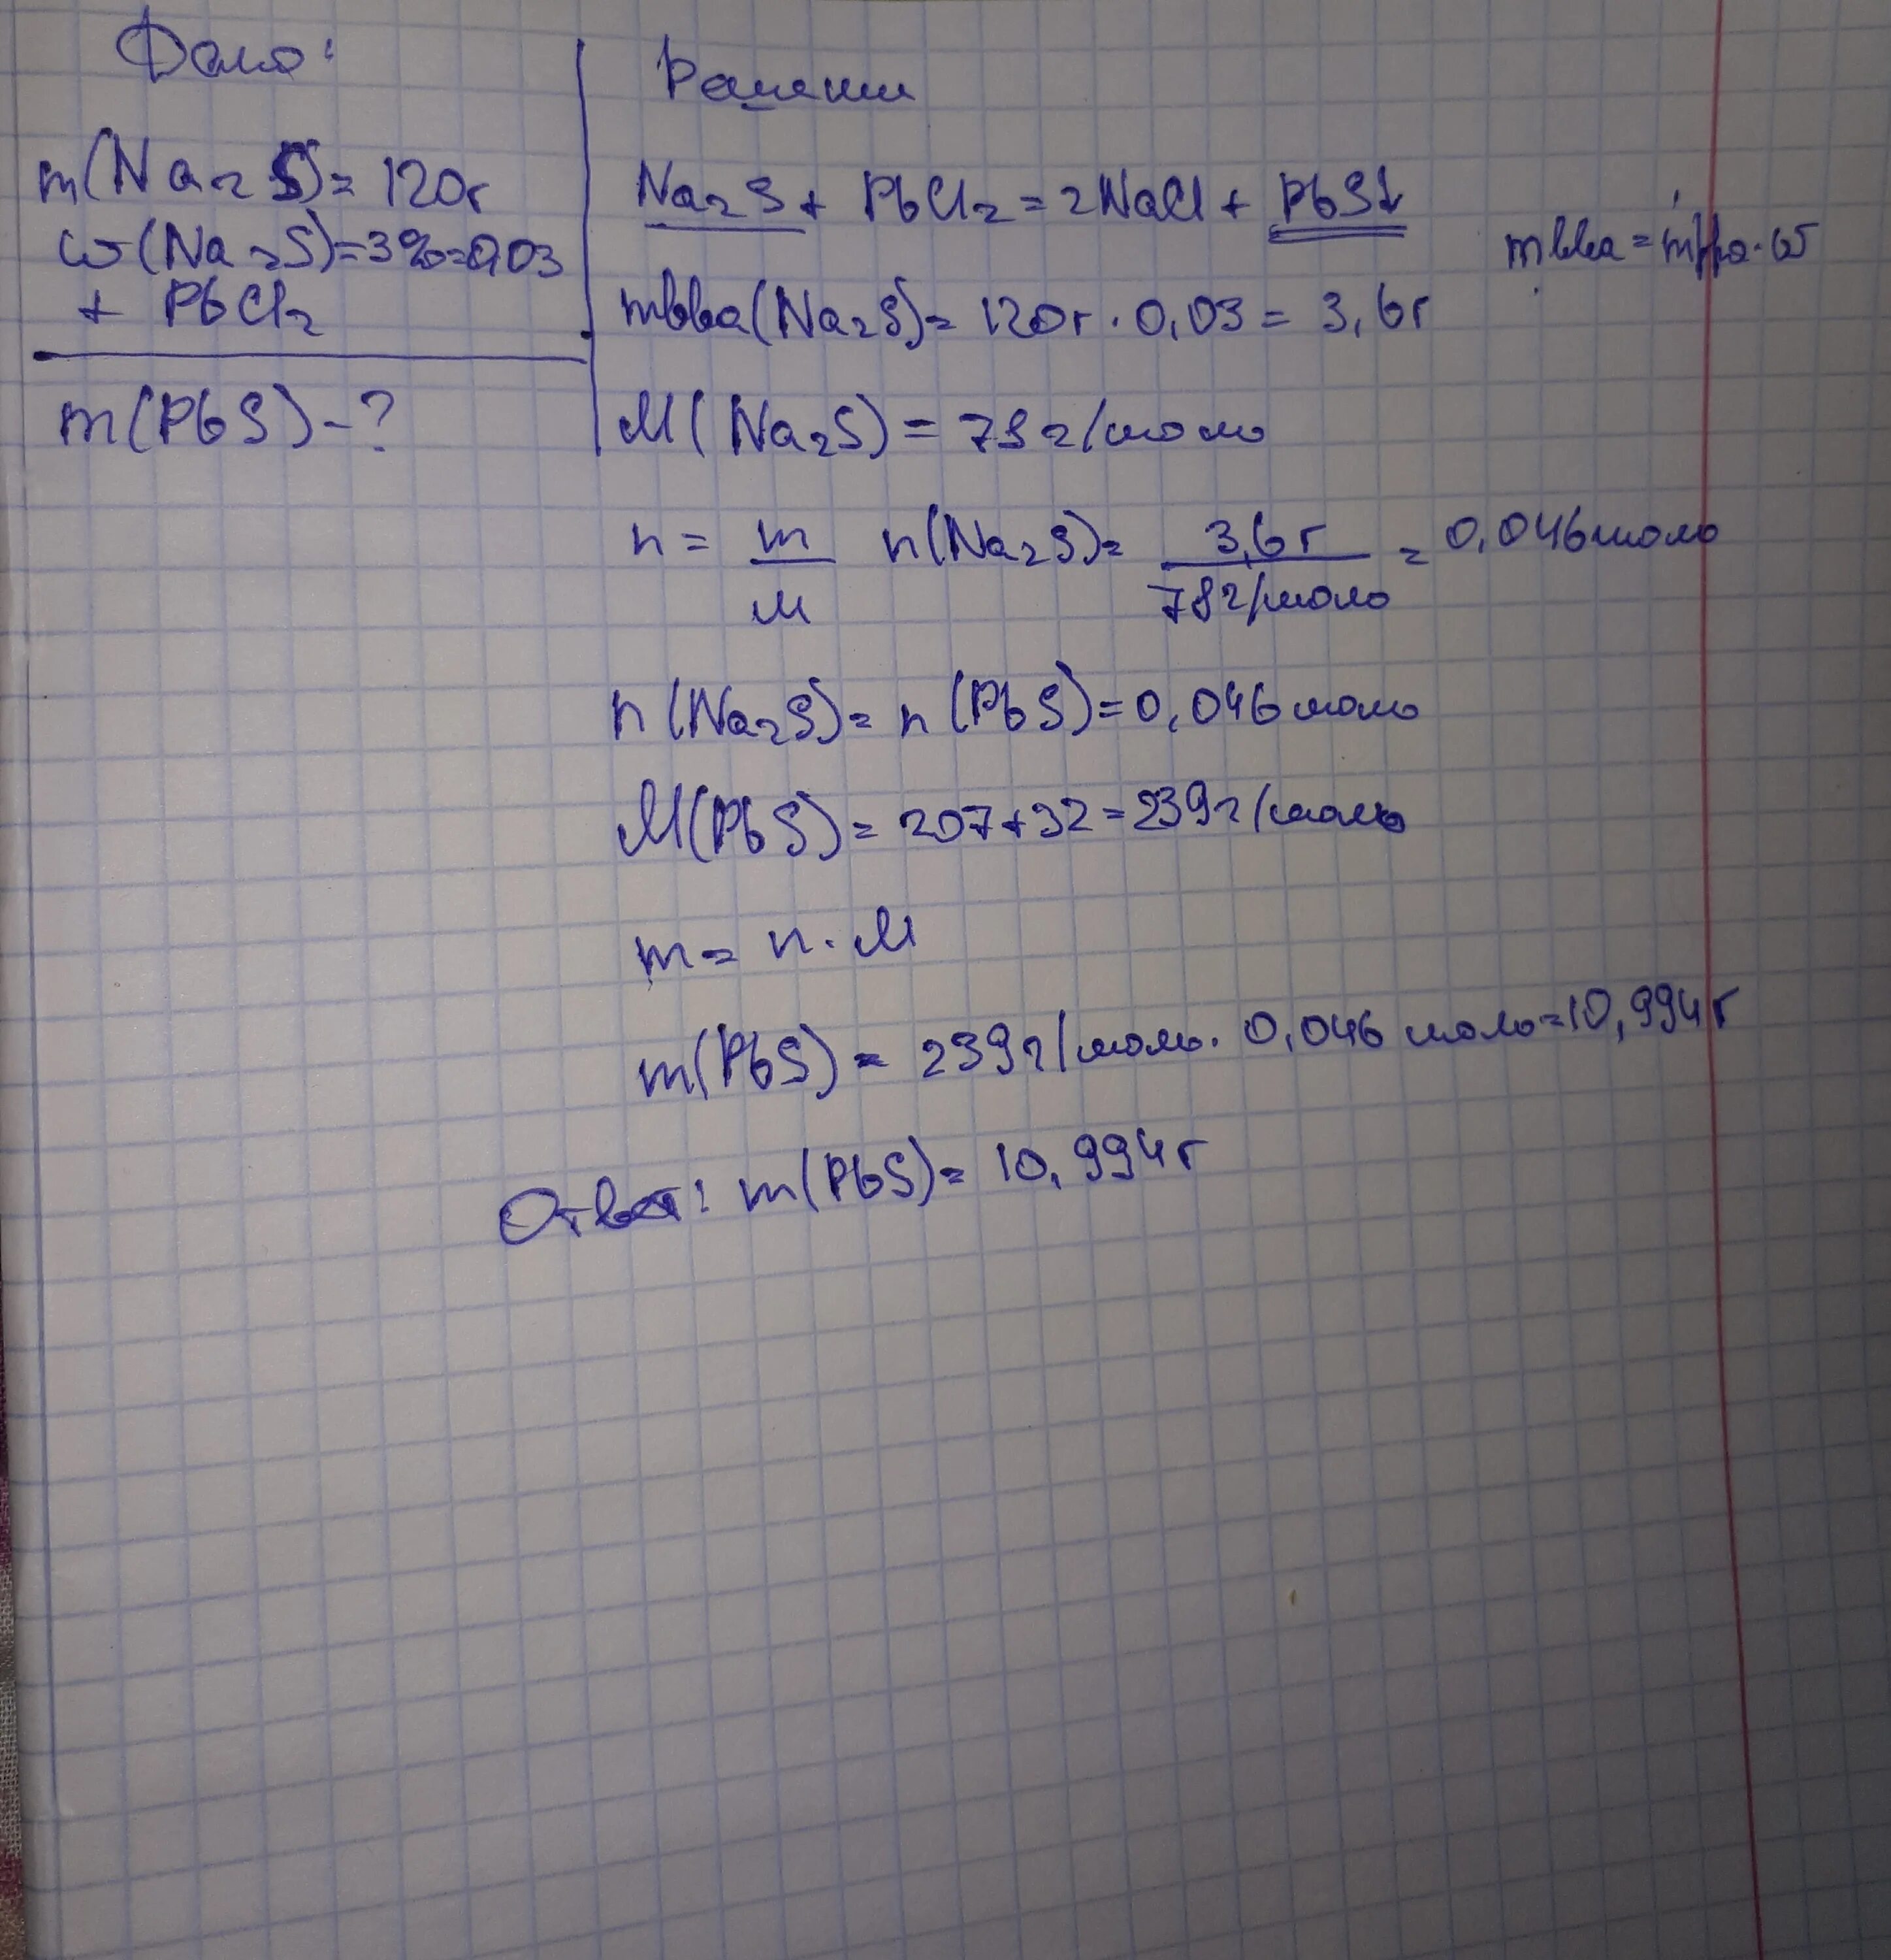 Дано:
m(Na₂S)=120г
ω(Na₂S)=3%=0,03
+ PbCl₂
m(PbS)-?
Решение
Na₂S + PbCl₂ = 2NaCl + PbS↓
mвва = mрра·ω
mвва(Na₂S)= 120г · 0,03 = 3,6г
M(Na₂S) = 78г/моль
n = m/M n(Na₂S)= 3,6г/78г/моль = 0,046моль
n(Na₂S)= n(PbS)=0,046моль
M(PbS)= 207+32=239г/моль
m= n·M
m(PbS)= 239г/моль· 0,046 моль=10,994г
Ответ: m(PbS)= 10,994г